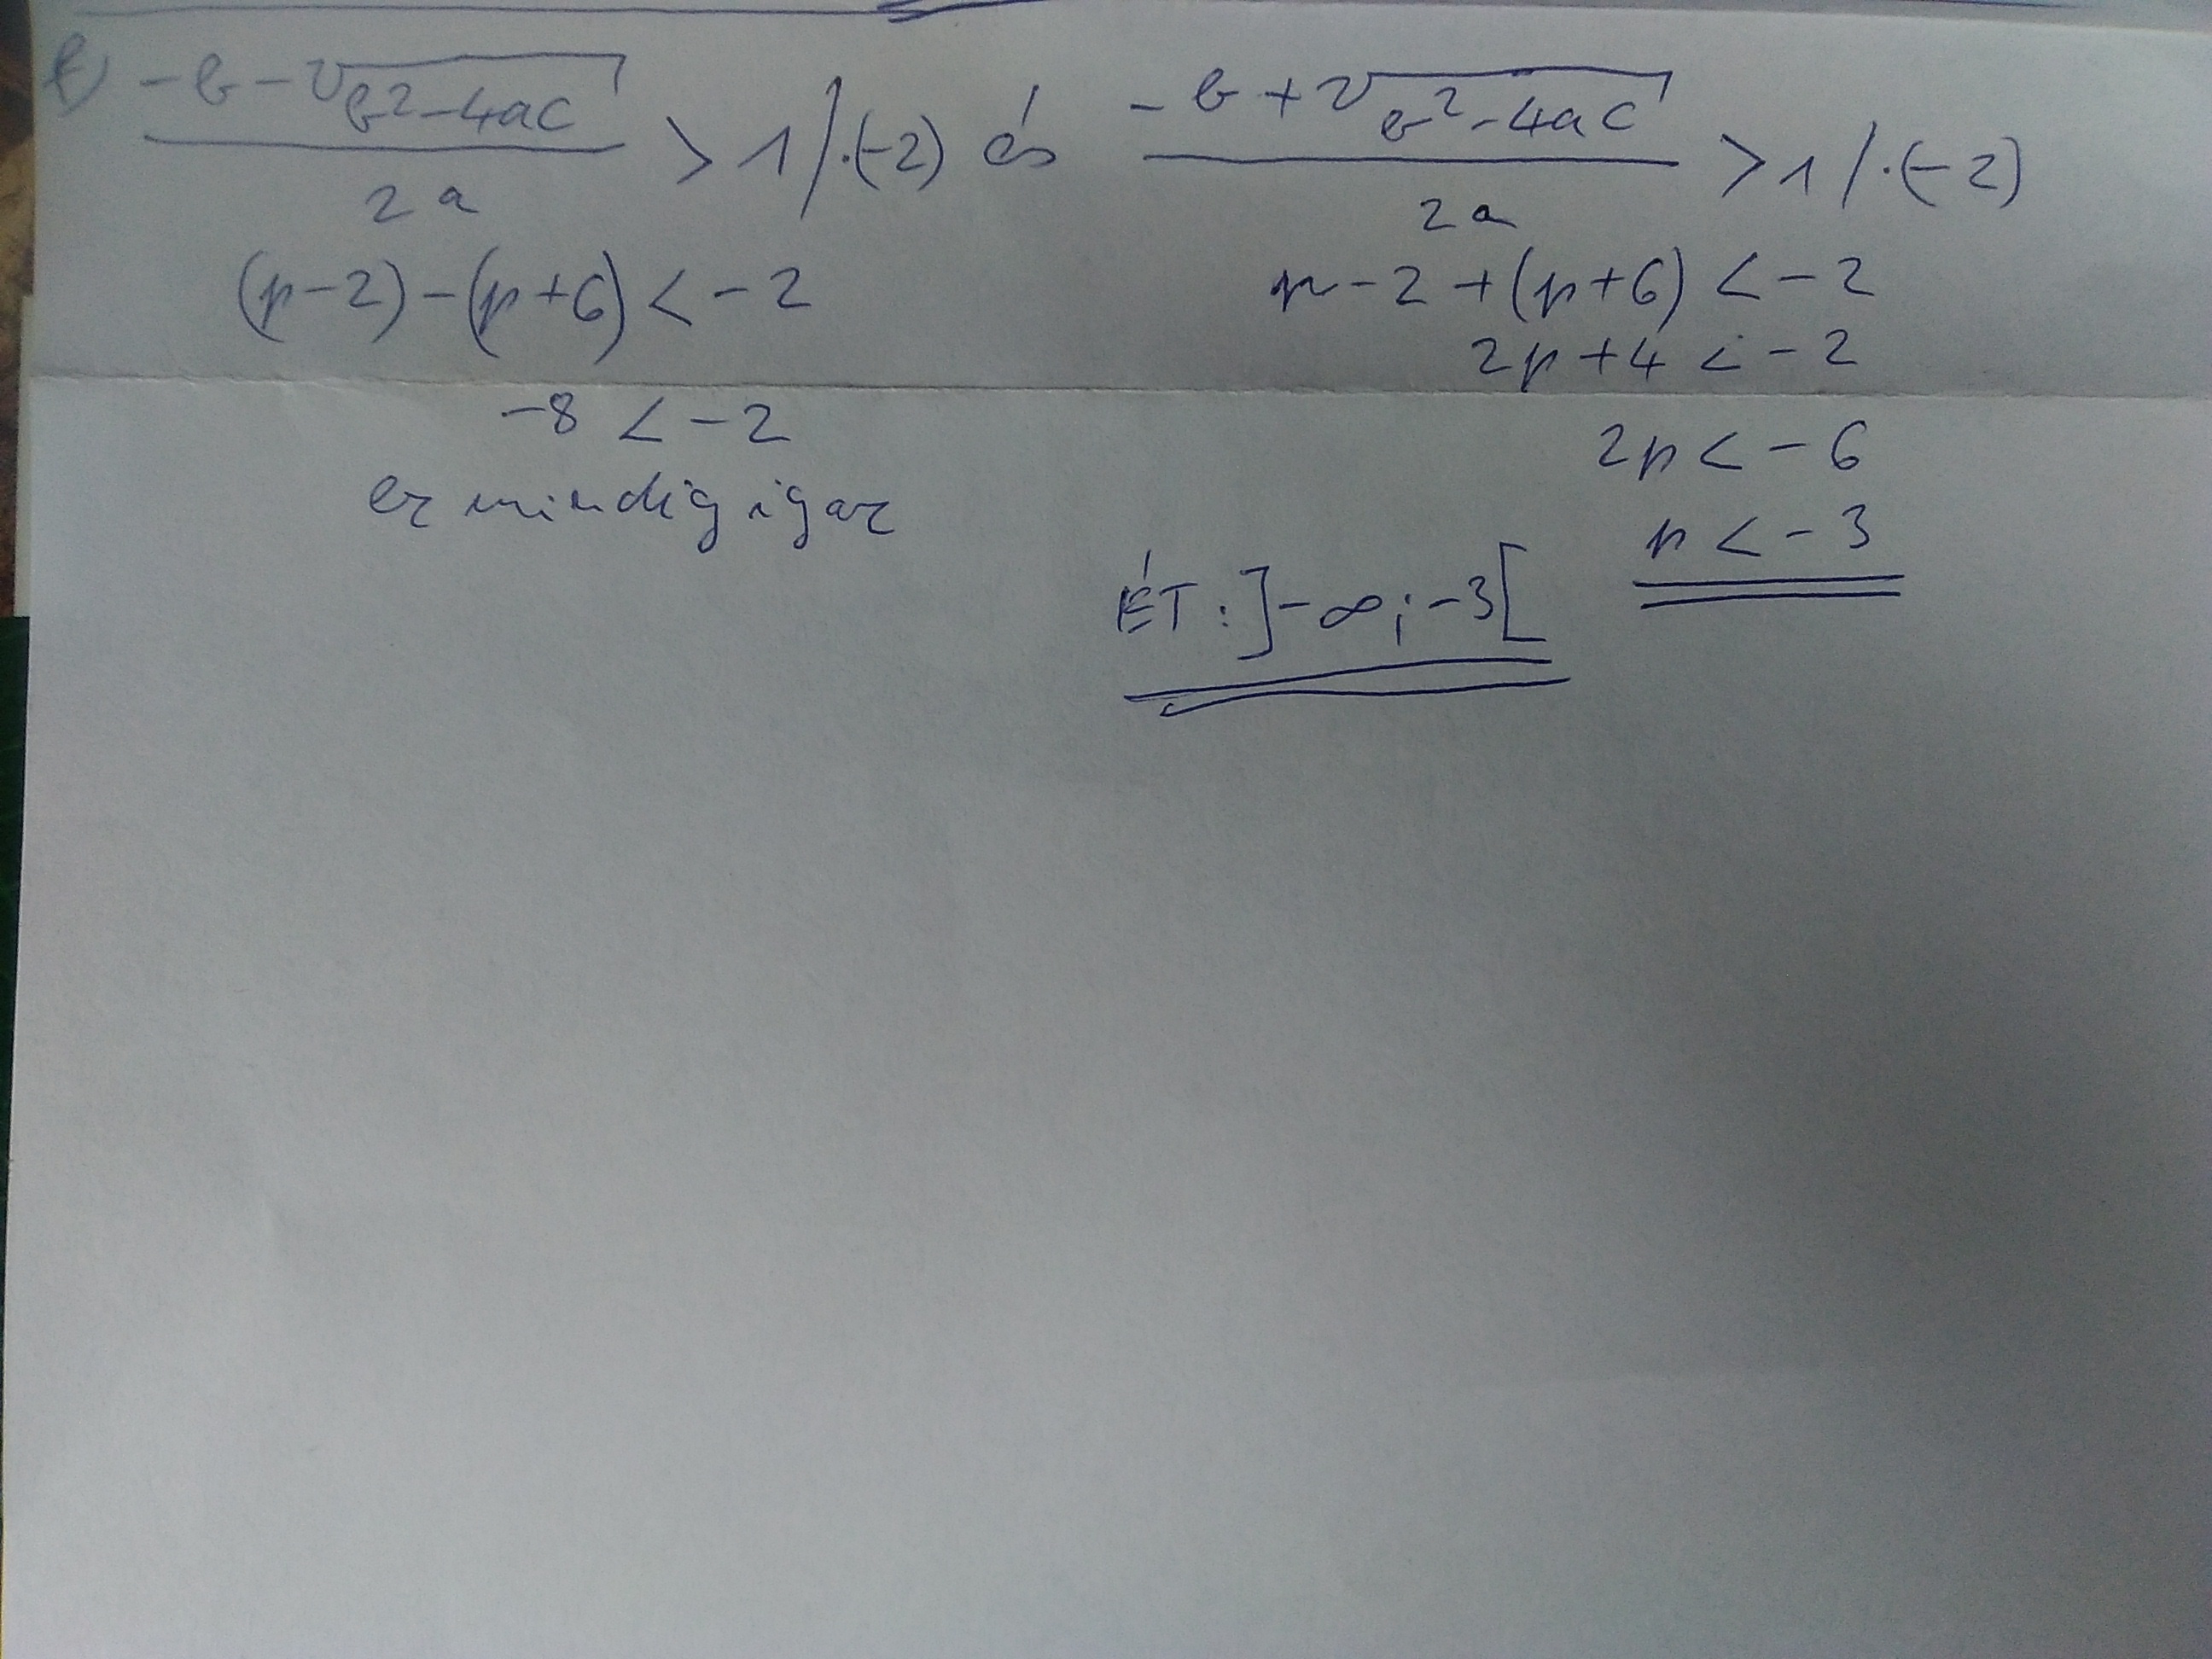 b) (-b-√(b²-4ac))/(2a) > 1 /·(-2) és (-b+√(b²-4ac))/(2a) > 1 /·(-2)
(p-2)-(p+6) < -2
-8 < -2
ez mindig igaz
p-2+(p+6) < -2
2p+4 < -2
2p < -6
p < -3
ÉT: ]-∞; -3[